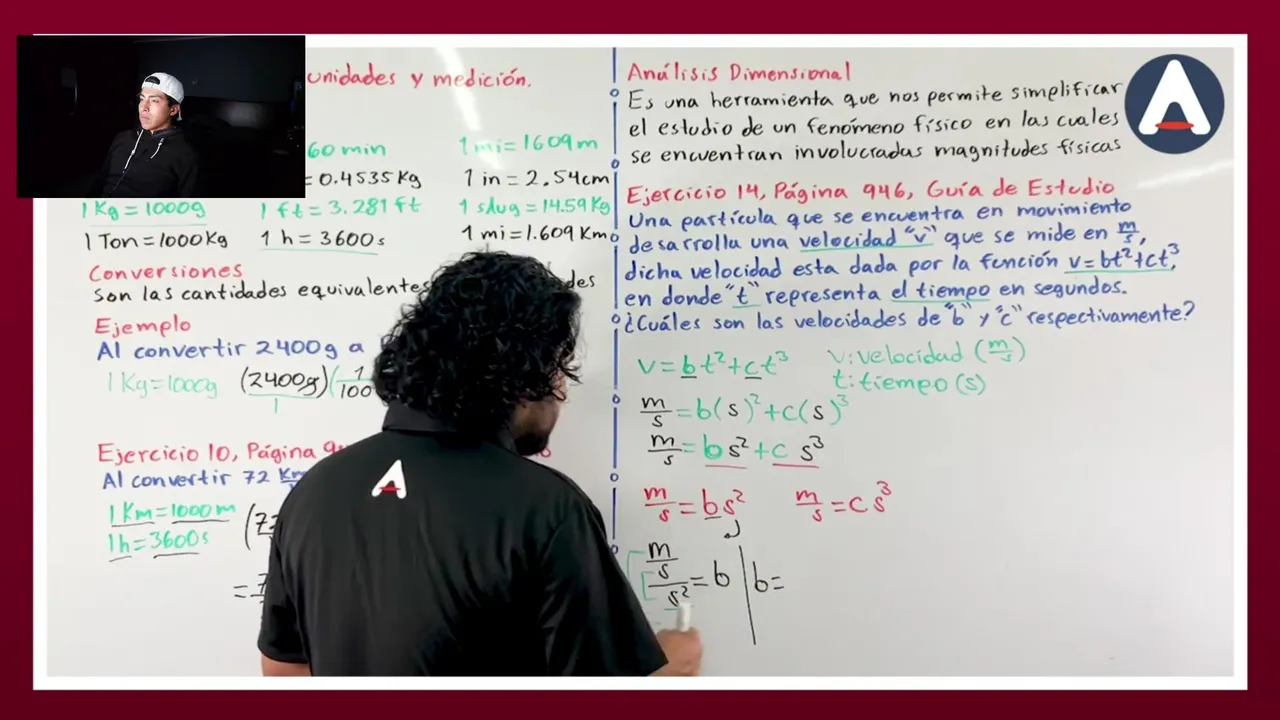 unidades y medición.
60 min
1 mi = 1609 m
= 0.4535 Kg
1 in = 2.54cm
1 Kg = 1000g
1 ft = 3.281 ft
1 slug = 14.59 Kg
1 Ton = 1000 Kg
1 h = 3600 s
1 mi = 1.609 Km
Conversiones
son las cantidades equivalentes
Ejemplo
Al convertir 2400 g a
1 Kg = 1000g (2400g)(1
100
Ejercicio 10, Página
Al convertir 72 Km
1 Km = 1000 m
1h = 3600s
(72
= 7
A
Análisis Dimensional
Es una herramienta que nos permite simplificar
el estudio de un fenómeno físico en las cuales
se encuentran involucradas magnitudes físicas
Ejercicio 14, Página 946, Guía de Estudio
Una partícula que se encuentra en movimiento
desarrolla una velocidad "v" que se mide en m/s,
dicha velocidad esta dada por la función v = bt²+ct³,
en donde "t" representa el tiempo en segundos.
¿Cuáles son las velocidades de "b" y "c" respectivamente?
v = bt²+ct³ v: velocidad (m/s)
t: tiempo (s)
m/s = b(s)²+c(s)³
m/s = bs²+c s³
m/s = bs² m/s = cs³
m/s/s² = b | b =
A